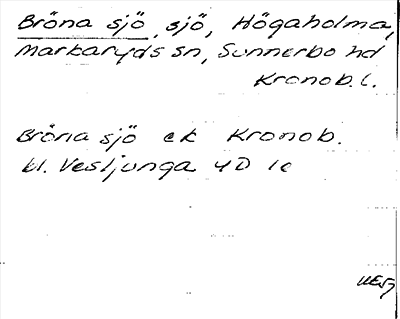 Bröna sjö, sjö, Högaholma,
Markaryds sn, Sunnerbo hd
Kronob. l.
Bröna sjö ek Kronob.
bl. Vesljunga 4D 1c